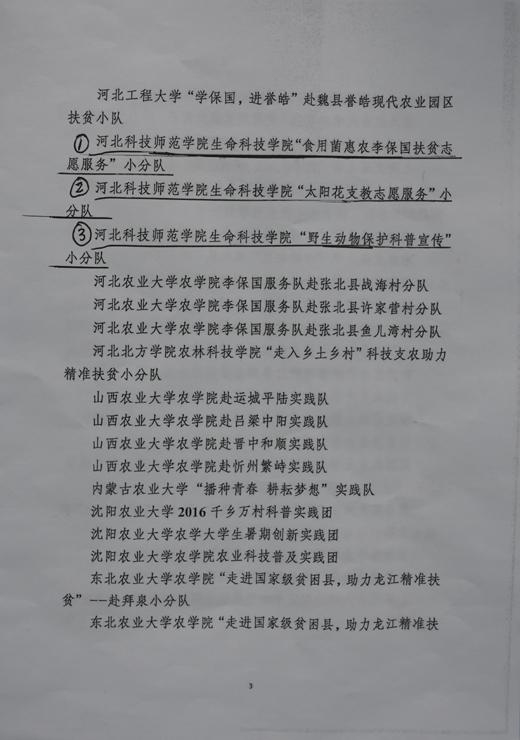 河北工程大学“学保国，进誉皓”赴魏县誉皓现代农业园区
扶贫小队
① 河北科技师范学院生命科技学院“食用菌惠农李保国扶贫志
愿服务”小分队
② 河北科技师范学院生命科技学院“太阳花支教志愿服务”小
分队
③ 河北科技师范学院生命科技学院“野生动物保护科普宣传”
小分队
河北农业大学农学院李保国服务队赴张北县战海村分队
河北农业大学农学院李保国服务队赴张北县许家营村分队
河北农业大学农学院李保国服务队赴张北县鱼儿湾村分队
河北北方学院农林科技学院“走入乡土乡村”科技支农助力
精准扶贫小分队
山西农业大学农学院赴运城平陆实践队
山西农业大学农学院赴吕梁中阳实践队
山西农业大学农学院赴晋中和顺实践队
山西农业大学农学院赴忻州繁峙实践队
内蒙古农业大学“播种青春 耕耘梦想”实践队
沈阳农业大学2016千乡万村科普实践团
沈阳农业大学农学大学生暑期创新实践团
沈阳农业大学农学院农业科技普及实践团
东北农业大学农学院“走进国家级贫困县，助力龙江精准扶
贫”--赴拜泉小分队
东北农业大学农学院“走进国家级贫困县，助力龙江精准扶
3